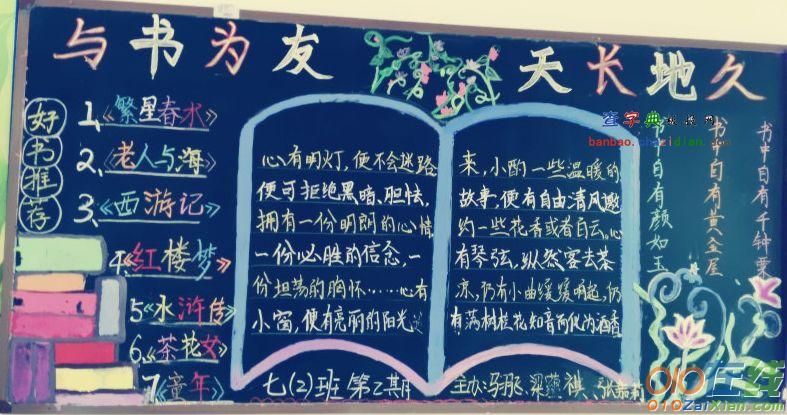 与书为友 天长地久
好书推荐
1、《繁星春水》
2、《老人与海》
3、《西游记》
4《红楼梦》
5《水浒传》
6、《茶花女》
7《童年》
心有明灯,便不会迷路
便可拒绝黑暗、胆怯,
拥有一份明朗的心情
一份必胜的信念,一
份坦荡的胸怀……心有
小窗,便有亮丽的阳光进
来,小酌一些温暖的
故事,便有自由清风邀
约一些花香或者白云。心
有琴弦,纵然客去茶
凉,仍有小曲缓缓响起,仍
有满树桂花知音而化为酒香
书中自有千钟粟
书中自有黄金屋
书中自有颜如玉
七(2)班 第2期
主办:
查字典
banbao.chazidian.com
010在线
010ZaiXian.com